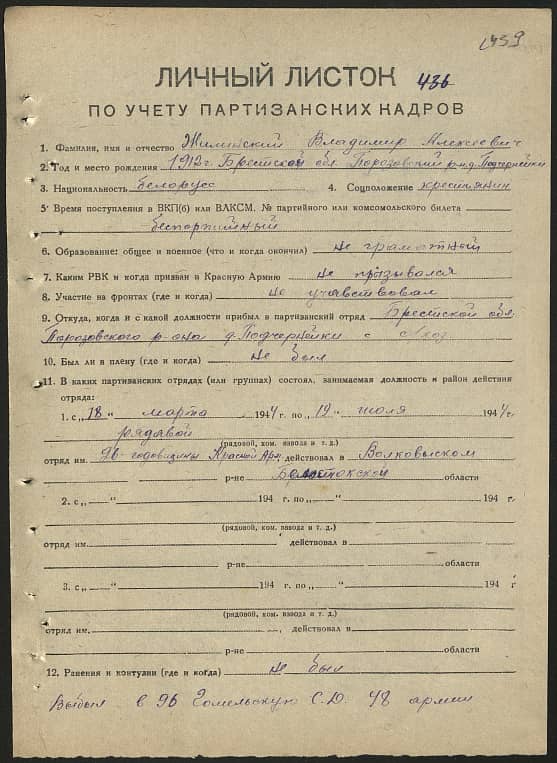 1439
ЛИЧНЫЙ ЛИСТОК 436
ПО УЧЕТУ ПАРТИЗАНСКИХ КАДРОВ
1. Фамилия, имя и отчество Жилинский Владимир Алексеевич
2. Год и место рождения 1912 г. Брестской обл Порозовский р-н д. Подчернейки
3. Национальность белорусс 4. Соцположение крестьянин
5. Время поступления в ВКП(б) или ВЛКСМ, № партийного или комсомольского билета
беспартийный
6. Образование: общее и военное (что и когда окончил) не грамотный
7. Каким РВК и когда призван в Красную Армию не призывался
8. Участие на фронтах (где и когда) не учавствовал
9. Откуда, когда и с какой должности прибыл в партизанский отряд Брестской обл
Порозовского р-она д. Подчернейки с
10. Был ли в плену (где и когда) не был
11. В каких партизанских отрядах (или группах) состоял, занимаемая должность и район действия
отряда:
1. с „18" марта 1944 г. по „12" июля 1944 г.
рядавой
(рядовой, ком. взвода и т. д.)
отряд им. 26 годовщины Красной Арм. действовал в Волковыском
р-не Белостокской области
2. с „ " 194 г. по „ " 194 г.
(рядовой, ком. взвода и т. д.)
отряд им. действовал в
р-не области
3. с „ " 194 г. по „ " 194 г
(рядовой, ком. взвода и т. д.)
отряд им. действовал в
р-не области
12. Ранения и контузии (где и когда) не был
Выбыл в 96 Гомельскую С.Д. 48 армии